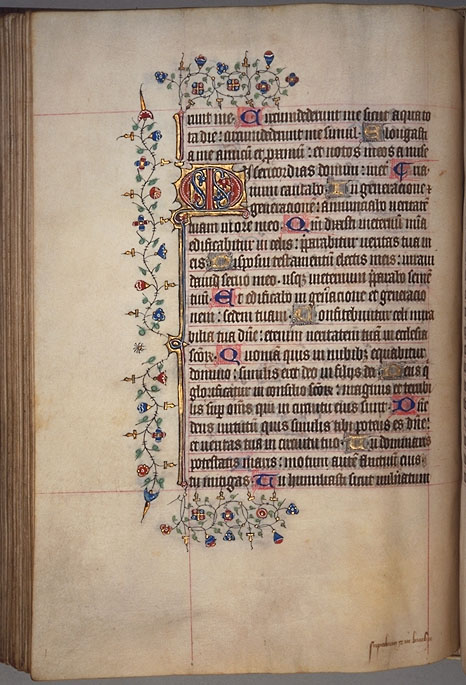 runt me. Circumdederunt me sicut aqua to
ta die: circumdederunt me simul. Elongasti
a me amicū et proximū: et notos meos a mise
Misericordias domini: inet̄
num cantabo. In generatione ⁊
generatione: annunciabo veritatē
tuam in ore meo. Qm̄ dixisti ineternū mīa
edificabitur in celis: p̄parabitur veritas tua in
eis Disposui testamentū electis meis: iuraui
dauid seruo meo. usq; ineternum p̄parabo semē
tuū. Et edificabo in gen̄atione et generatio
nem: sedem tuam. Confitebuntur celi mira
bilia tua dn̄e: etenim ueritatem tuā in ecclesia
sc̄or̄. Quoniā quis in nubib; equabitur
domino: similis erit deo in filijs dei. Deus q̄
glorificatur in consilio sc̄or̄: magnus et terribi
lis sup̄ om̄s qui in circuitu eius sunt. Dn̄e
deus uirtutū quis similis tibi potens es dn̄e:
et ueritas tua in circuitu tuo. Tu dominaris
potestatis maris: motum autē fluctuū eius
tu mitigas. Tu humiliasti sicut uulneratum